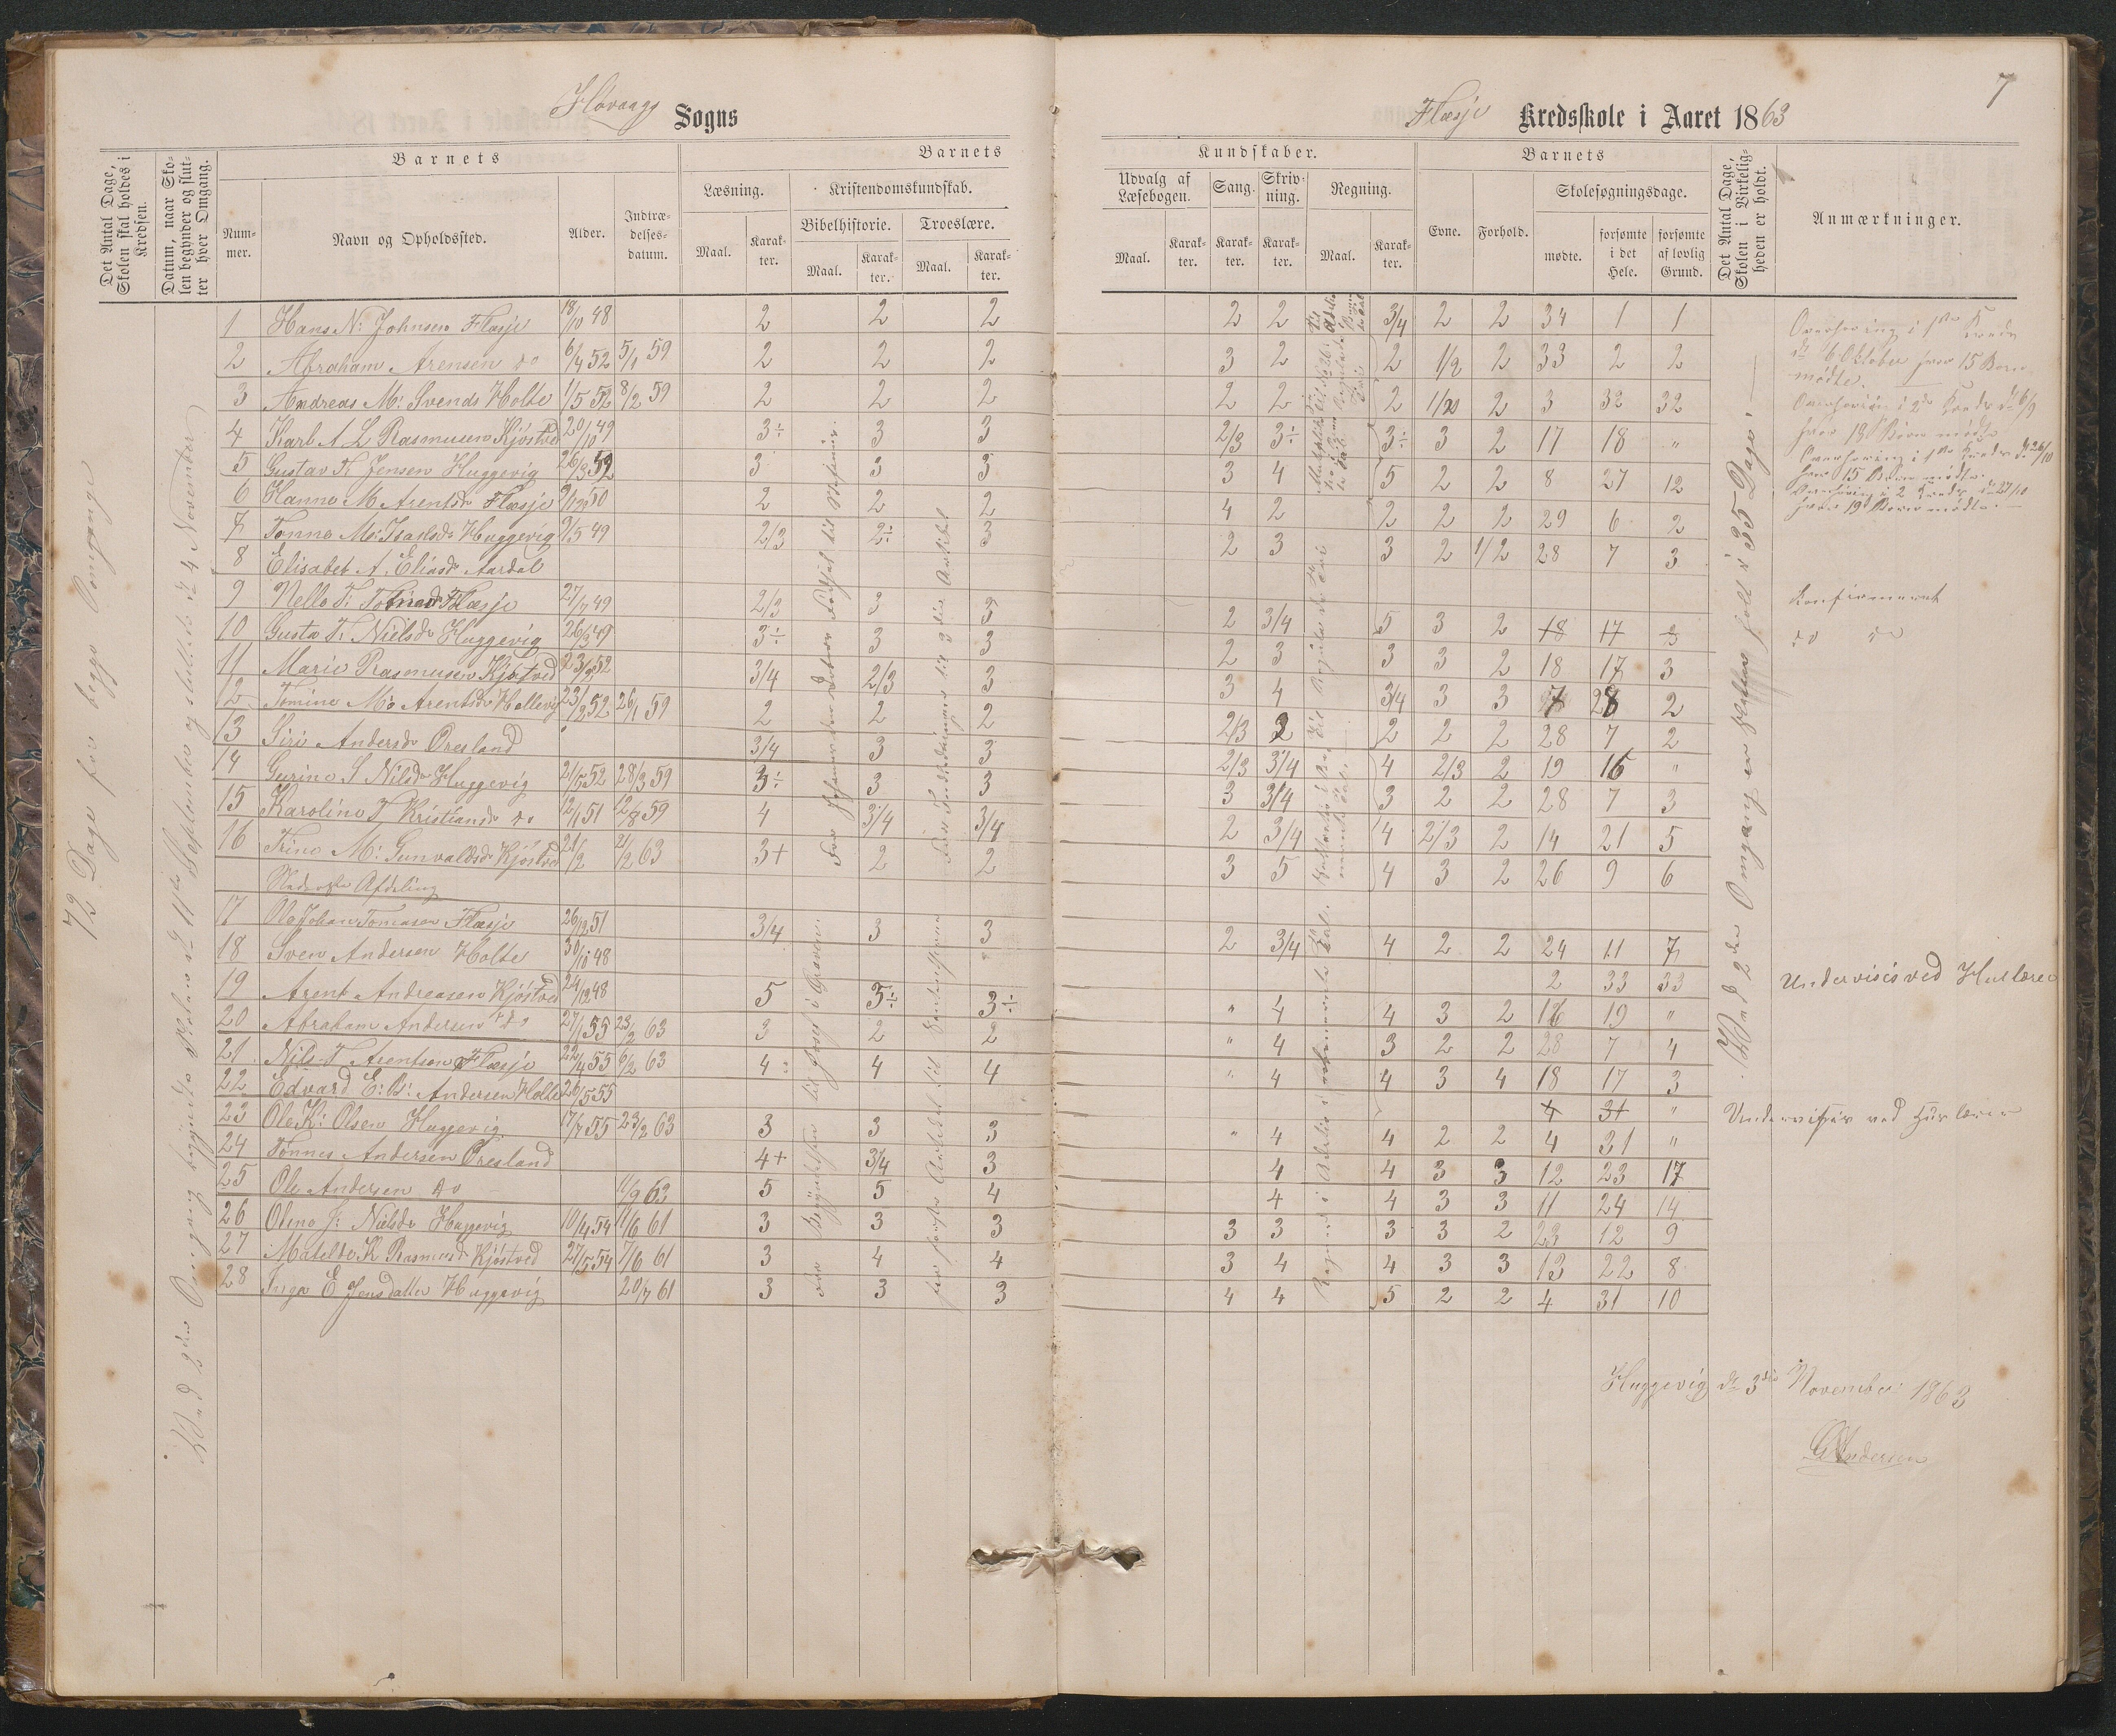 7
Høvaags Sogns
Flæsje Kredsskole i Aaret 1863
Det Antal Dage, Skolen skal holdes i Kredsen.
Datum, naar Skolen begynder og slutter hver Omgang.
Barnets
Nummer.
Navn og Opholdssted.
Alder.
Indtrædelsesdatum.
Barnets
Læsning.
Maal.
Karakter.
Kristendomskundskab.
Bibelhistorie.
Maal.
Karakter.
Troeslære.
Maal.
Karakter.
Kundskaber.
Udvalg af Læsebogen.
Maal.
Karakter.
Sang.
Karakter.
Skrivning.
Karakter.
Regning.
Maal.
Karakter.
Barnets
Evne.
Forhold.
Skolesøgningsdage.
mødte.
forsømte i det Hele.
forsømte af lovlig Grund.
Det Antal Dage, Skolen i Virkeligheden er holdt.
Anmærkninger.
72 Dage for begge Omgange
Ved 2den Omgang begyndte Skolen d. 11te September og sluttede d. 4 November
1 Hans N: Johnsen Flæsje 18/10 48 2 2 2 2 2 3/4 2 2 34 1 1
2 Abraham Arensen do 6/4 52 5/1 59 2 2 2 3 2 2 1/2 2 33 2 2
3 Andreas M: Svends Holte 1/5 52 8/2 59 2 2 2 2 2 2 2 3 32 32
4 Karl A L Rasmusen Kjøstved 20/10 49 3÷ 3 3 2/3 3÷ 3÷ 3 2 17 18 "
5 Gustav T. Jensen Huggevig 26/3 52 3 3 3 3 4 5 2 2 8 27 12
6 Hanna M Arentsdr Flæsje 50 2 2 2 4 2 2 2 2 29 6 2
7 Tonna M: Isaksdr Huggevig 9/5 49 2/3 2÷ 3 2 3 3 2 1/2 28 7 3
8 Elisabet A. Eliasdr Aardal
9 Nella T: Flæsje 27/7 49 2/3 3 3 2 3/4 5 3 2 18 17 3
10 Gusta T. Nielsdr Huggevig 26/3 49 3÷ 3 3 2 3 3 3 2 18 17 3
11 Marie Rasmusen Kjøstved 52 3/4 2/3 3 3 4 3/4 3 3 7 28 2
12 Tomine M: Arentsdr Hellevig 23/2 52 26/1 59 2 2 2 2/3 2 2 2 28 7 2
13 Siri Andersdr Øresland 3/4 3 3 2/3 3/4 4 2/3 2 19 16 "
14 Gurine S Nilsdr Huggevig 21/5 52 28/3 59 3÷ 3 3 3 3/4 3 2 2 28 7 3
15 Karoline T Kristiansdr do 12/1 51 12/8 59 4 3/4 3/4 2 3/4 4 2/3 2 14 21 5
16 Trine M: Gunvaldsdr Kjøstved 21/2 63 3+ 2 2 3 5 4 3 2 26 9 6
Nederste Afdeling
17 Ole Johan Tomasen Flæsje 26/12 51 3/4 3 3 2 3/4 4 2 2 24 11 7
18 Sven Andersen Holte 30/10 48 2 33 33 Undervises ved Huslærer
19 Arent Andreasen Kjøstved 24/12 48 5 3÷ 3÷ " 4 4 3 2 16 19 "
20 Abraham Andersen do 27/1 55 23/2 63 3 2 2 " 4 3 2 2 28 7 4
21 Nils T Arentsen Flæsje 22/4 55 6/2 63 4 4 4 " 4 4 3 4 18 17 3
22 Edvard E: B: Andersen Holte 26/5 55 4 31 " Undervises ved Huslærer
23 Ole K: Olsen Huggevig 17/7 55 23/2 63 3 3 3 " 4 4 2 2 4 31 "
24 Tønnes Andersen Øresland 4+ 3/4 3 4 4 3 3 12 23 17
25 Ole Andersen do 11/9 62 5 5 4 4 4 3 3 11 24 14
26 Olena J: Nielsdr Huggevig 10/4 54 11/6 61 3 3 3 3 3 3 3 2 23 12 9
27 Matelde K Rasmusdr Kjøstved 27/5 54 7/6 61 3 4 4 3 4 4 3 3 13 22 8
28 Inga E Jensdatter Huggevig 20/7 61 3 3 3 4 4 5 2 2 4 31 10
Ved 2den Omgang er Skolen holdt i 35 Dage.
Overhøring i 1ste Kreds
d. 6 Oktober hvor 15 Børn
mødte.
Overhøring i 2de Kreds d. 6/9
hvor 18 Børn mødte
Overhøring i 1ste Kreds d. 26/10
hvor 15 Børn mødte.
Overhøring i 2 Kreds d. 27/10
hvor 19 Børn mødte.
Konfirmeret
do do
Huggevig d. 3die November 1863
G Andersen